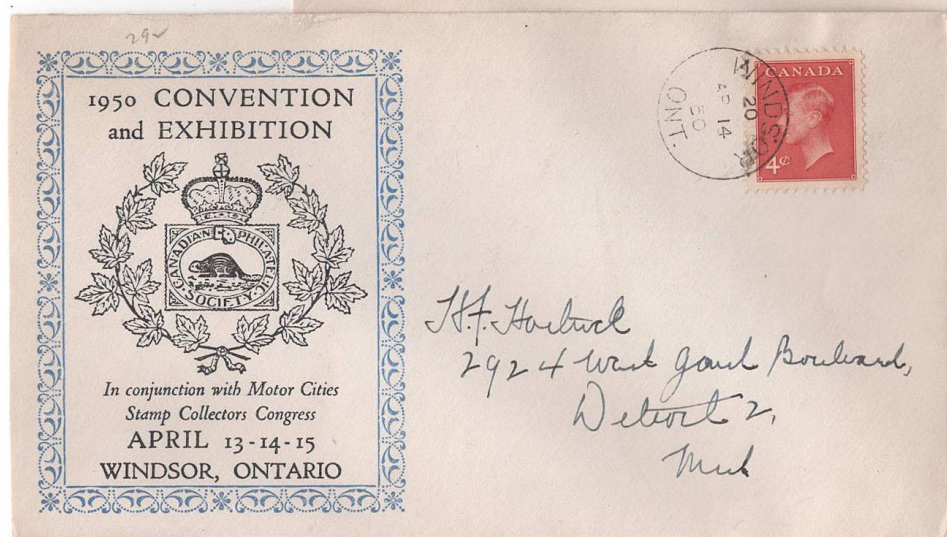 29
1950 CONVENTION
and EXHIBITION
CANADIAN PHILATELIC
SOCIETY
In conjunction with Motor Cities
Stamp Collectors Congress
APRIL 13-14-15
WINDSOR, ONTARIO
WINDSOR
20
AP 14
50
ONT.
CANADA
4¢
H.F.
2924 West Grand Boulevard,
Detroit 2,
Mich